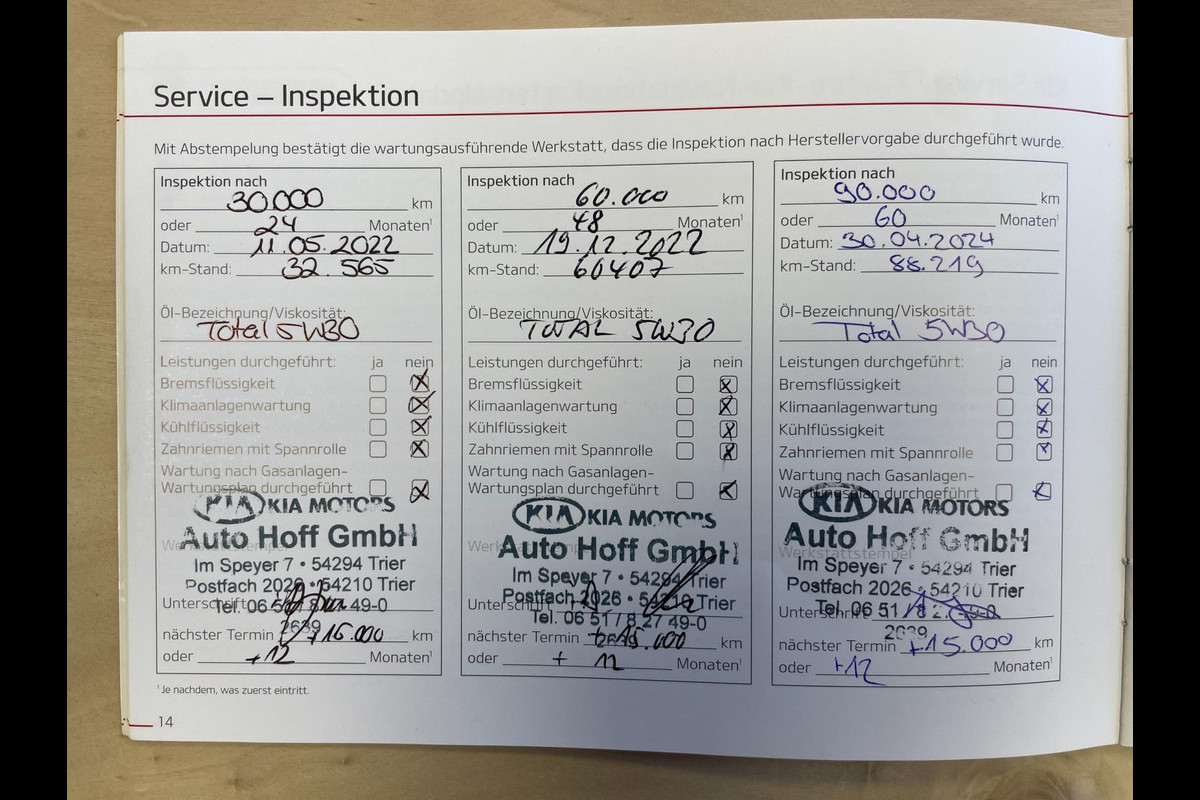 Service – Inspektion
Mit Abstempelung bestätigt die wartungsausführende Werkstatt, dass die Inspektion nach Herstellervorgabe durchgeführt wurde.
Inspektion nach
30.000 km
oder 24 Monaten¹
Datum: 11.05.2022
km-Stand: 32.565
Öl-Bezeichnung/Viskosität:
Total 5W30
Leistungen durchgeführt: ja nein
Bremsflüssigkeit
Klimaanlagenwartung
Kühlflüssigkeit
Zahnriemen mit Spannrolle
Wartung nach Gasanlagen-
Wartungsplan durchgeführt
KIA KIA MOTORS
Auto Hoff GmbH
Im Speyer 7 • 54294 Trier
Postfach 2026 • 54210 Trier
Unterschrift
Tel. 06 51 / 8 27 49-0
2639
nächster Termin +15.000 km
oder +12 Monaten¹
Inspektion nach
60.000 km
oder 48 Monaten¹
Datum: 19.12.2022
km-Stand: 60407
Öl-Bezeichnung/Viskosität:
TOTAL 5W30
Leistungen durchgeführt: ja nein
Bremsflüssigkeit
Klimaanlagenwartung
Kühlflüssigkeit
Zahnriemen mit Spannrolle
Wartung nach Gasanlagen-
Wartungsplan durchgeführt
KIA KIA MOTORS
Auto Hoff GmbH
Im Speyer 7 • 54294 Trier
Postfach 2026 • 54210 Trier
Unterschrift
Tel. 06 51 / 8 27 49-0
2639
nächster Termin + 15.000 km
oder + 12 Monaten¹
Inspektion nach
90.000 km
oder 60 Monaten¹
Datum: 30.04.2024
km-Stand: 88.219
Öl-Bezeichnung/Viskosität:
Total 5W30
Leistungen durchgeführt: ja nein
Bremsflüssigkeit
Klimaanlagenwartung
Kühlflüssigkeit
Zahnriemen mit Spannrolle
Wartung nach Gasanlagen-
Wartungsplan durchgeführt
KIA KIA MOTORS
Auto Hoff GmbH
Werkstattstempel
Im Speyer 7 • 54294 Trier
Postfach 2026 • 54210 Trier
Unterschrift
Tel. 06 51 / 8 27 49-0
2639
nächster Termin +15.000 km
oder +12 Monaten¹
¹ Je nachdem, was zuerst eintritt.
14